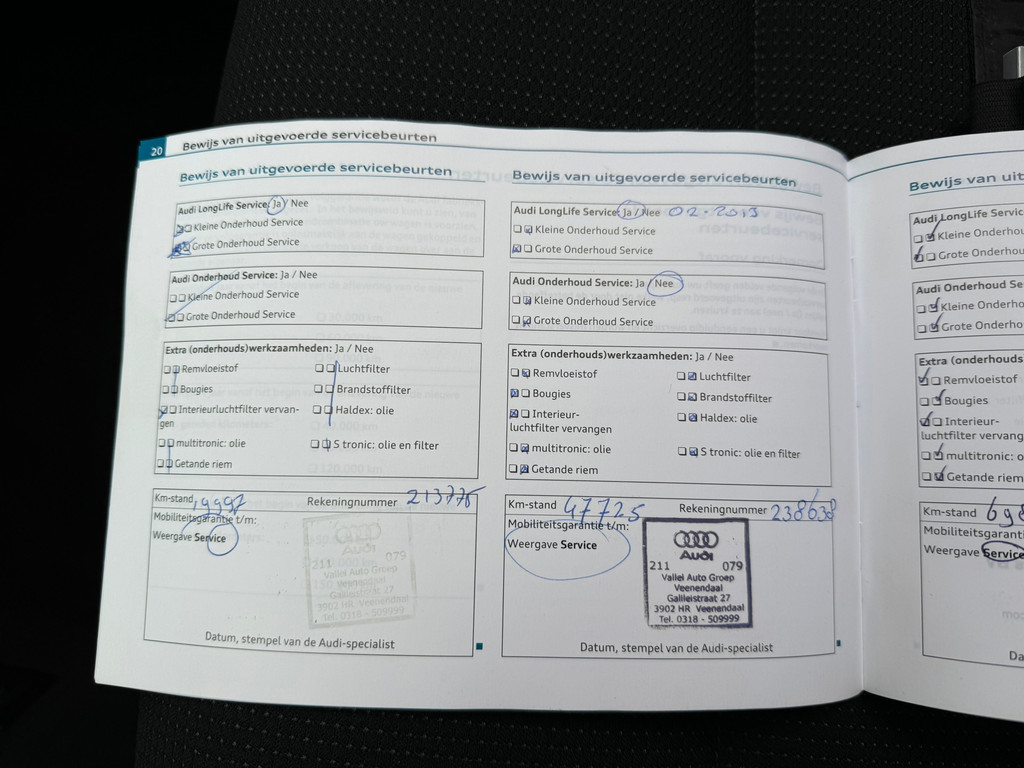 20 Bewijs van uitgevoerde servicebeurten
Bewijs van uitgevoerde servicebeurten
Audi LongLife Service: Ja / Nee
Kleine Onderhoud Service
Grote Onderhoud Service
Audi Onderhoud Service: Ja / Nee
Kleine Onderhoud Service
Grote Onderhoud Service
Extra (onderhouds)werkzaamheden: Ja / Nee
Remvloeistof
Luchtfilter
Bougies
Brandstoffilter
Interieurluchtfilter vervan-
gen
Haldex: olie
multitronic: olie
S tronic: olie en filter
Getande riem
Km-stand 19997 Rekeningnummer 213775
Mobiliteitsgarantie t/m:
Weergave Service
Audi
211 079
Vallei Auto Groep
Veenendaal
Galileistraat 27
3902 HR Veenendaal
Tel. 0318 - 509999
Datum, stempel van de Audi-specialist
Bewijs van uitgevoerde servicebeurten
Audi LongLife Service: Ja / Nee 02-2013
Kleine Onderhoud Service
Grote Onderhoud Service
Audi Onderhoud Service: Ja / Nee
Kleine Onderhoud Service
Grote Onderhoud Service
Extra (onderhouds)werkzaamheden: Ja / Nee
Remvloeistof
Luchtfilter
Bougies
Brandstoffilter
Interieur-
luchtfilter vervangen
Haldex: olie
multitronic: olie
S tronic: olie en filter
Getande riem
Km-stand 47725 Rekeningnummer 238638
Mobiliteitsgarantie t/m:
Weergave Service
Audi
211 079
Vallei Auto Groep
Veenendaal
Galileistraat 27
3902 HR Veenendaal
Tel. 0318 - 509999
Datum, stempel van de Audi-specialist
Bewijs van uit
Audi LongLife Service
Kleine Onderho
Grote Onderho
Audi Onderhoud Se
Kleine Onderho
Grote Onderho
Extra (onderhouds
Remvloeistof
Bougies
Interieur-
luchtfilter vervang
multitronic: o
Getande riem
Km-stand 698
Mobiliteitsgarant
Weergave Service
Da